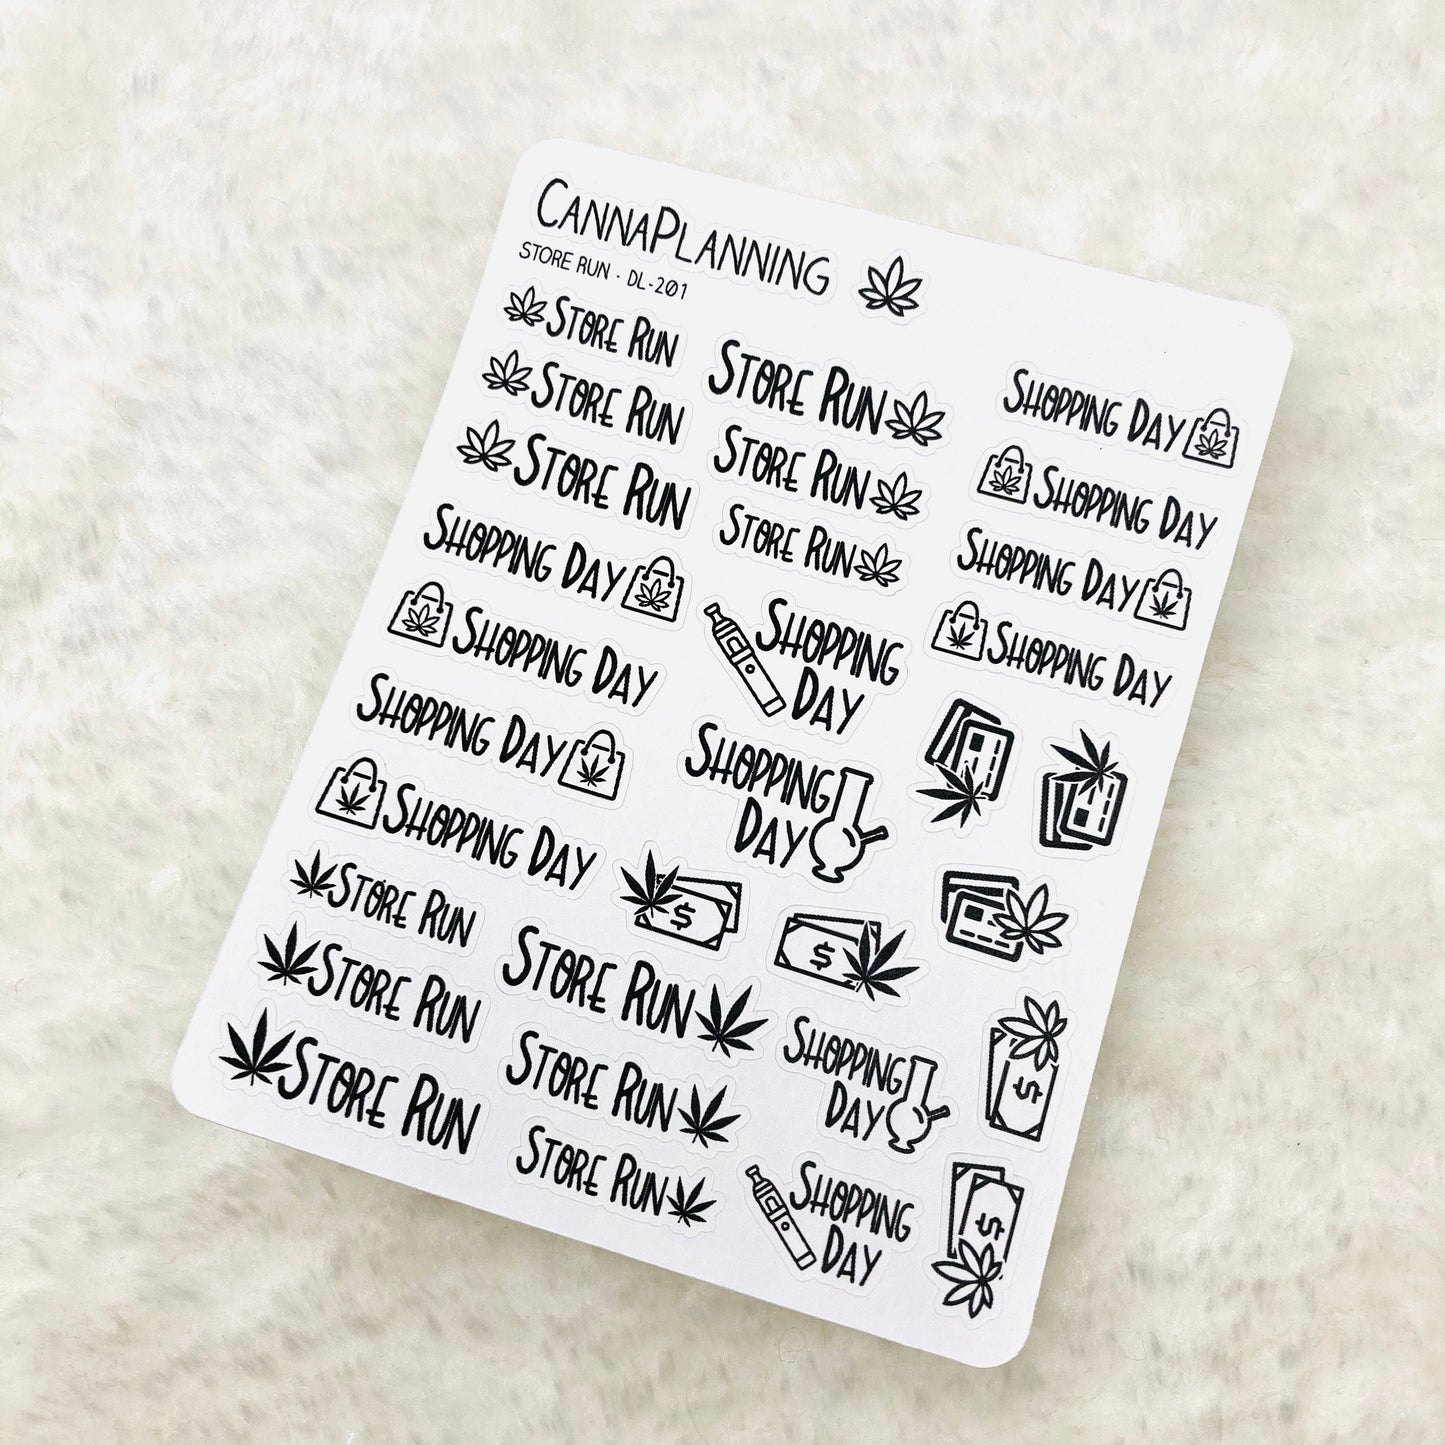 CANNAPLANNING
STORE RUN · DL-201
STORE RUN
STORE RUN
STORE RUN
SHOPPING DAY
SHOPPING DAY
SHOPPING DAY
SHOPPING DAY
STORE RUN
STORE RUN
STORE RUN
STORE RUN
STORE RUN
STORE RUN
SHOPPING
DAY
SHOPPING
DAY
$
$
STORE RUN
STORE RUN
STORE RUN
SHOPPING DAY
SHOPPING DAY
SHOPPING DAY
SHOPPING DAY
SHOPPING
DAY
SHOPPING
DAY
$
$